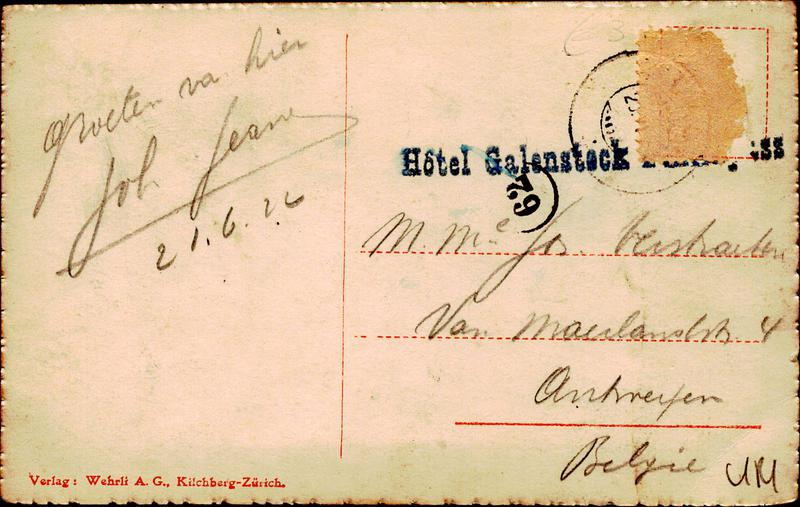 Groeten van hier
Jos Jeanne
21.6.26
Hôtel Galenstock
79
M. Me Jos. Verstraeten
Van Maerlandstr. 4
Antwerpen
Belgie
Verlag: Wehrli A. G., Kilchberg-Zürich.